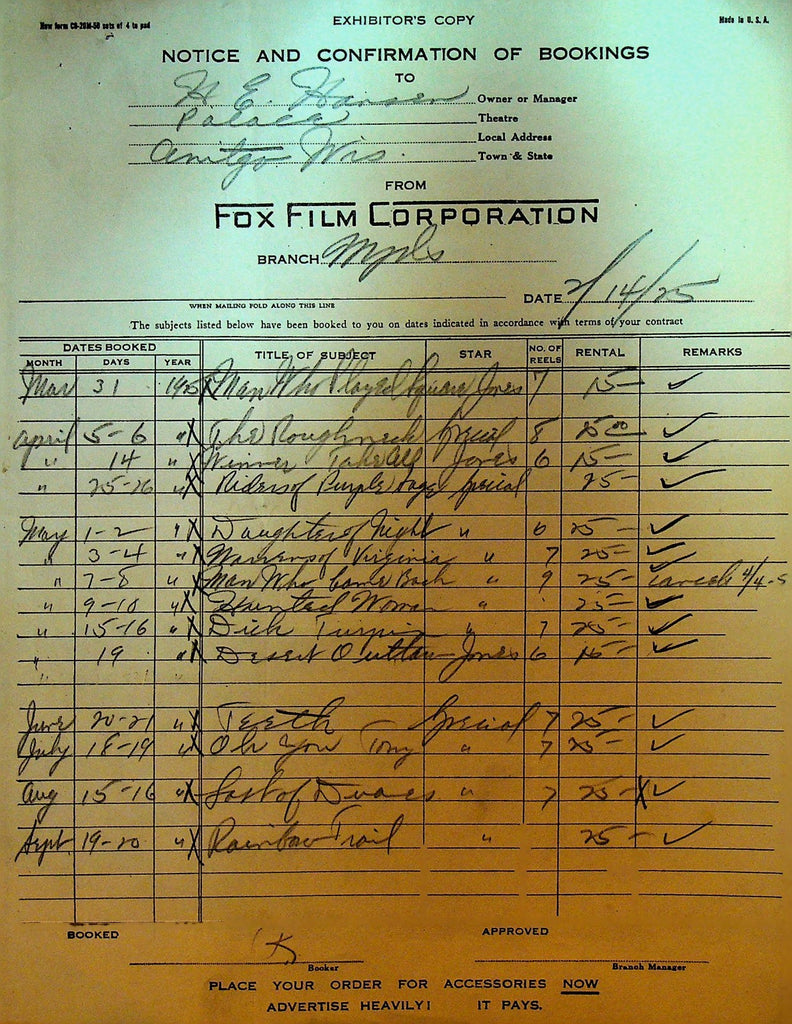 New form C8-20M-50 sets of 4 to pad EXHIBITOR'S COPY Made in U. S. A.
NOTICE AND CONFIRMATION OF BOOKINGS
TO
H. E. Hansen Owner or Manager
Palace Theatre
Local Address
Antigo Wis. Town & State
FROM
FOX FILM CORPORATION
BRANCH Mpls
WHEN MAILING FOLD ALONG THIS LINE DATE 2/14/25
The subjects listed below have been booked to you on dates indicated in accordance with terms of your contract
DATES BOOKED
MONTH DAYS YEAR TITLE OF SUBJECT STAR NO. OF REELS RENTAL REMARKS
Mar 31 1925 X Man Who Played Square Jones 7 15— ✓
April 5-6 " X The Roughneck Special 8 25.00 ✓
" 14 " X Winner Take All Jones 6 15— ✓
" 25-26 " X Riders of Purple Sage Special 25— ✓
May 1-2 " X Daughters of Night " 6 25— ✓
" 3-4 " X Warrens of Virginia " 7 25— ✓
" 7-8 " X Man Who Came Back " 9 25—
" 9-10 " X Hunted Woman " 25— ✓
" 15-16 " X Dick Turpin " 7 25— ✓
" 19 " X Desert Outlaw Jones 6 15— ✓
June 20-21 " X Teeth Special 7 25— ✓
July 18-19 " X Oh You Tony " 7 25— ✓
Aug 15-16 " X Last of Duanes " 7 25— X ✓
Sept 19-20 " X Rainbow Trail " 25— ✓
BOOKED APPROVED
Booker Branch Manager
PLACE YOUR ORDER FOR ACCESSORIES NOW
ADVERTISE HEAVILY! IT PAYS.